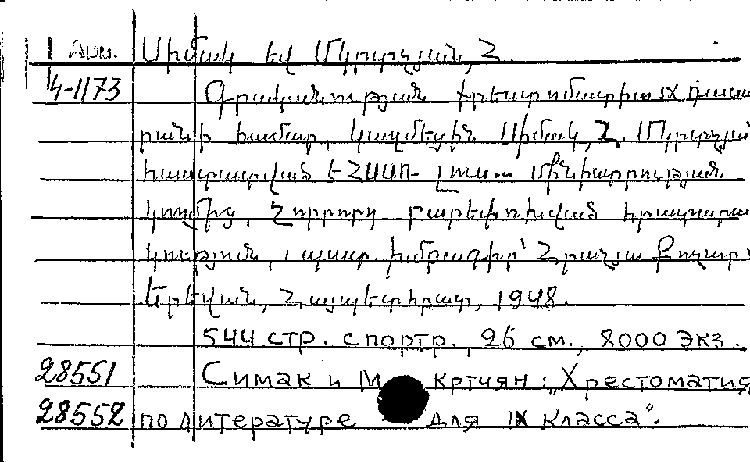 Арм. Սիմակ եվ Մկրտչյան, Հ.
4-1173 Գրականության քրեստոմատիա IX դասա
րանի համար, կազմեցին Սիմակ, Հ. Մկրտչյան
հաստատված է ՀՍՍՌ լուս. մինիստրության
կողմից, չորրորդ բարեփոխված հրատարա
կություն, պատ. խմբագիր՝ Հրաչյա Քոչար
Երեվան, Հայպետհրատ, 1948.
544 стр. с портр., 26 см., 8000 экз.
28551 Симак и Мкртчян: „Хрестоматия
28552 по литературе для IX класса“.